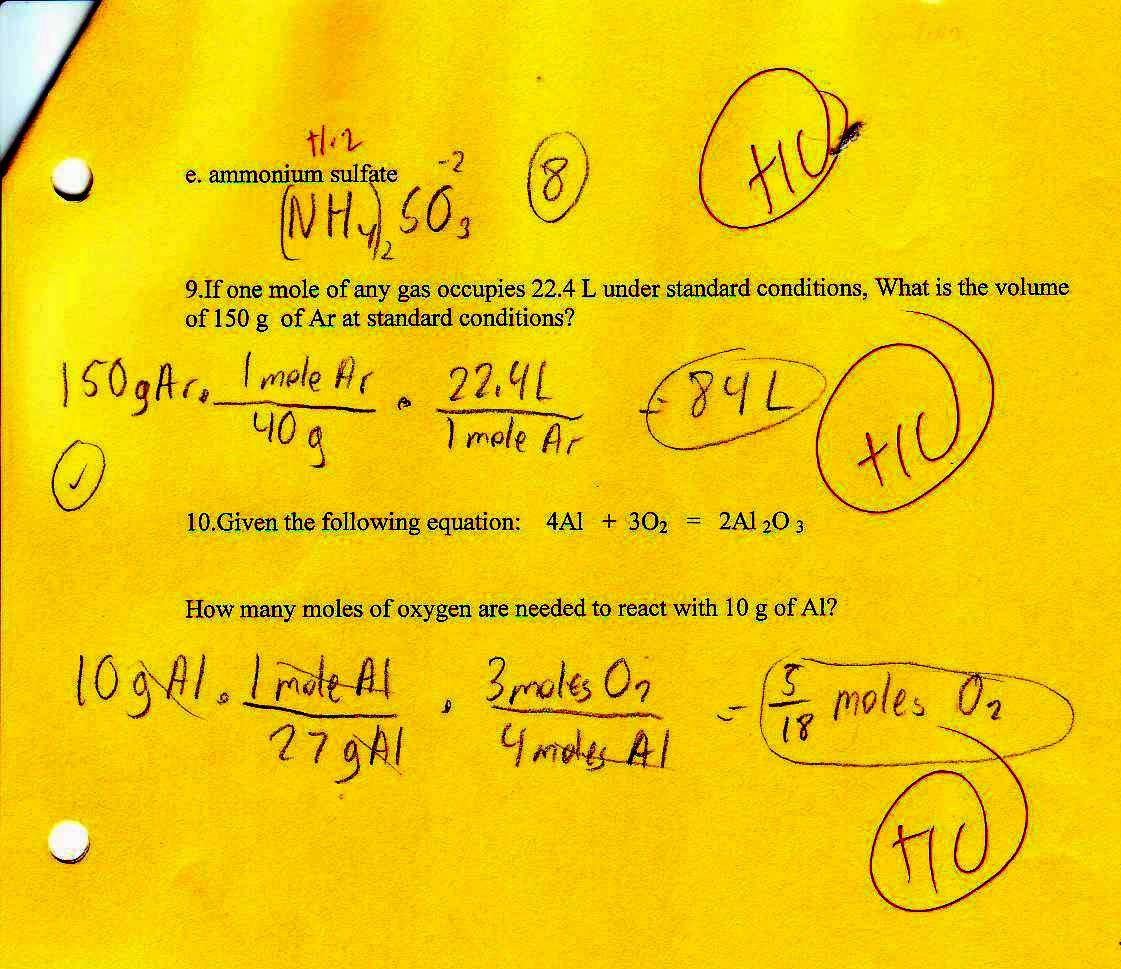 +1·2
e. ammonium sulfate -2
(NH4)2 SO3
8
+10
9.If one mole of any gas occupies 22.4 L under standard conditions, What is the volume
of 150 g of Ar at standard conditions?
150gAr · 1 mole Ar / 40 g · 22.4L / 1 mole Ar = 84 L
+10
10.Given the following equation: 4Al + 3O2 = 2Al 2O 3
How many moles of oxygen are needed to react with 10 g of Al?
10 g Al · 1 mole Al / 27 g Al · 3 moles O2 / 4 moles Al = 5/18 moles O2
+10